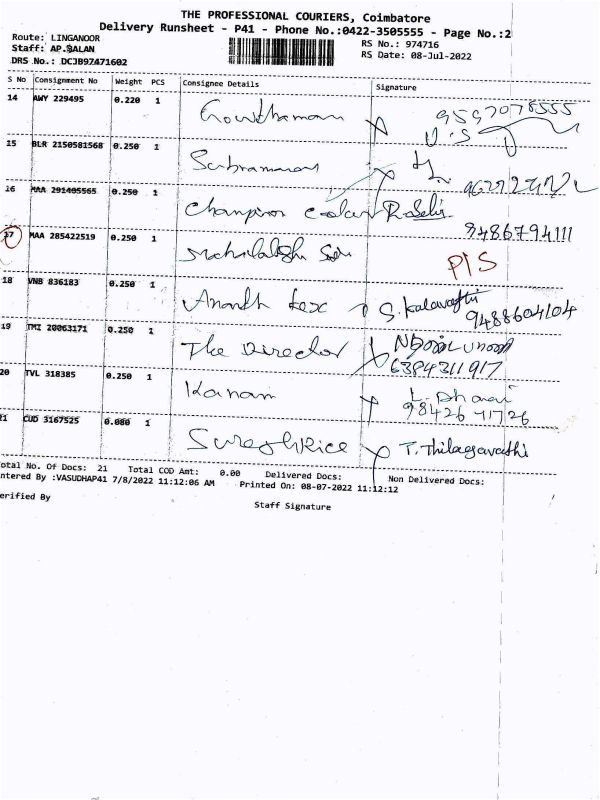 THE PROFESSIONAL COURIERS, Coimbatore
Delivery Runsheet - P41 - Phone No.:0422-3505555 - Page No.:2
Route: LINGANOOR
RS No.: 974716
Staff: AP.BALAN
RS Date: 08-Jul-2022
DRS No.: DCJB97471602
S No Consignment No Weight PCS Consignee Details Signature
14 AWY 229495 0.220 1 Gowthaman 9597078555
V.S
15 BLR 2150581568 0.250 1 Subramanan
16 MAA 291405565 0.250 1 Champion
17 MAA 285422519 0.250 1 9486794111
P/S
18 VNB 836183 0.250 1 Ananth Tex S. Kalavathi
9488604104
19 TMI 20063171 0.250 1 The Director
6384311917
20 TVL 318385 0.250 1 Kanam
98426 41726
21 CUD 3167525 0.080 1 Suresh Rice T. Thilagavathi
otal No. Of Docs: 21 Total COD Amt: 0.00 Delivered Docs: Non Delivered Docs:
ntered By :VASUDHAP41 7/8/2022 11:12:06 AM Printed On: 08-07-2022 11:12:12
erified By
Staff Signature